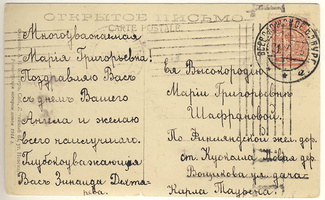 ОТКРЫТОЕ ПИСЬМО
CARTE POSTALE
Многоуважаемая
Мария Григорьевна!
Поздравляю Васъ
съ днемъ Вашего
Ангела и желаю
всего наилучшаго.
Глубокоуважающая
Васъ Зинаида Дехте-
рева.
Ея Высокородію
Маріи Григорьевнѣ
Шафрановой.
По Финляндской жел. дор.
ст. Куоккала
дача
Карла